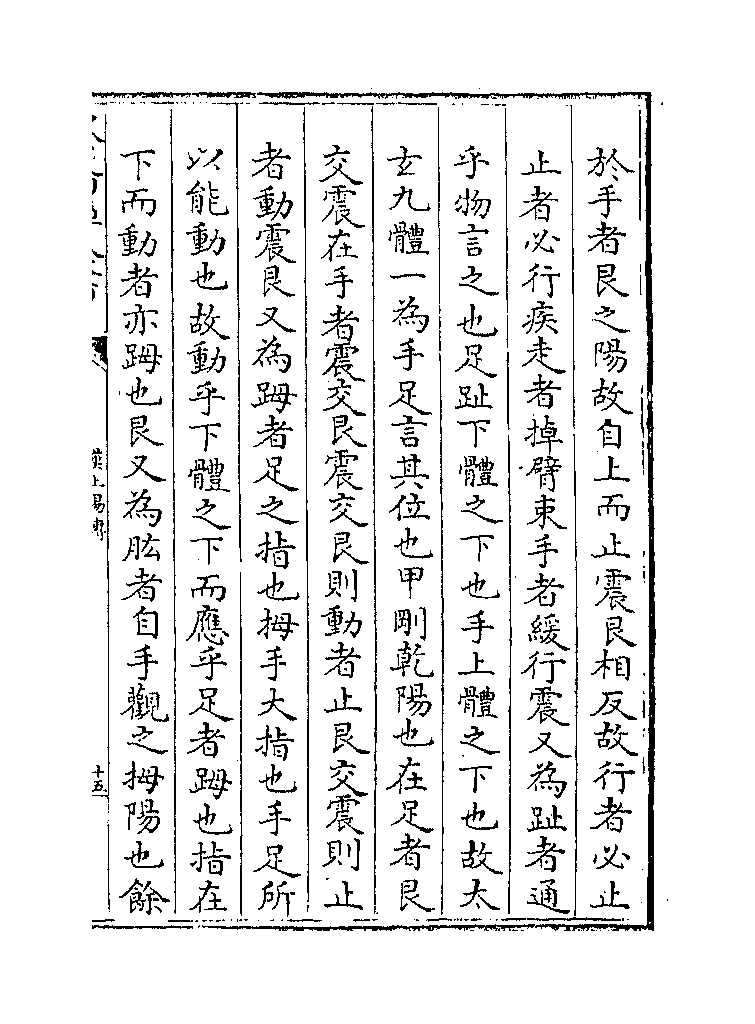 於手者艮之陽故自上而止震艮相反故行者必止
止者必行疾走者掉臂束手者緩行震又為趾者通
乎物言之也足趾下體之下也手上體之下也故太
玄九體一為手足言其位也甲剛乾陽也在足者艮
交震在手者震交艮震交艮則動者止艮交震則止
者動震艮又為踇者足之指也拇手大指也手足所
以能動也故動乎下體之下而應乎足者踇也指在
下而動者亦踇也艮又為肱者自手觀之拇陽也餘
漢上易傳
十五